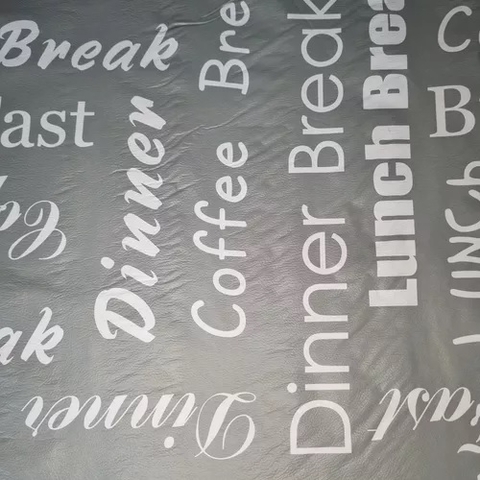 Break
fast
Dinner
Coffee Bre
Dinner Break
Lunch Brea
Co
B
LUNCh
ak
Dinner
fast